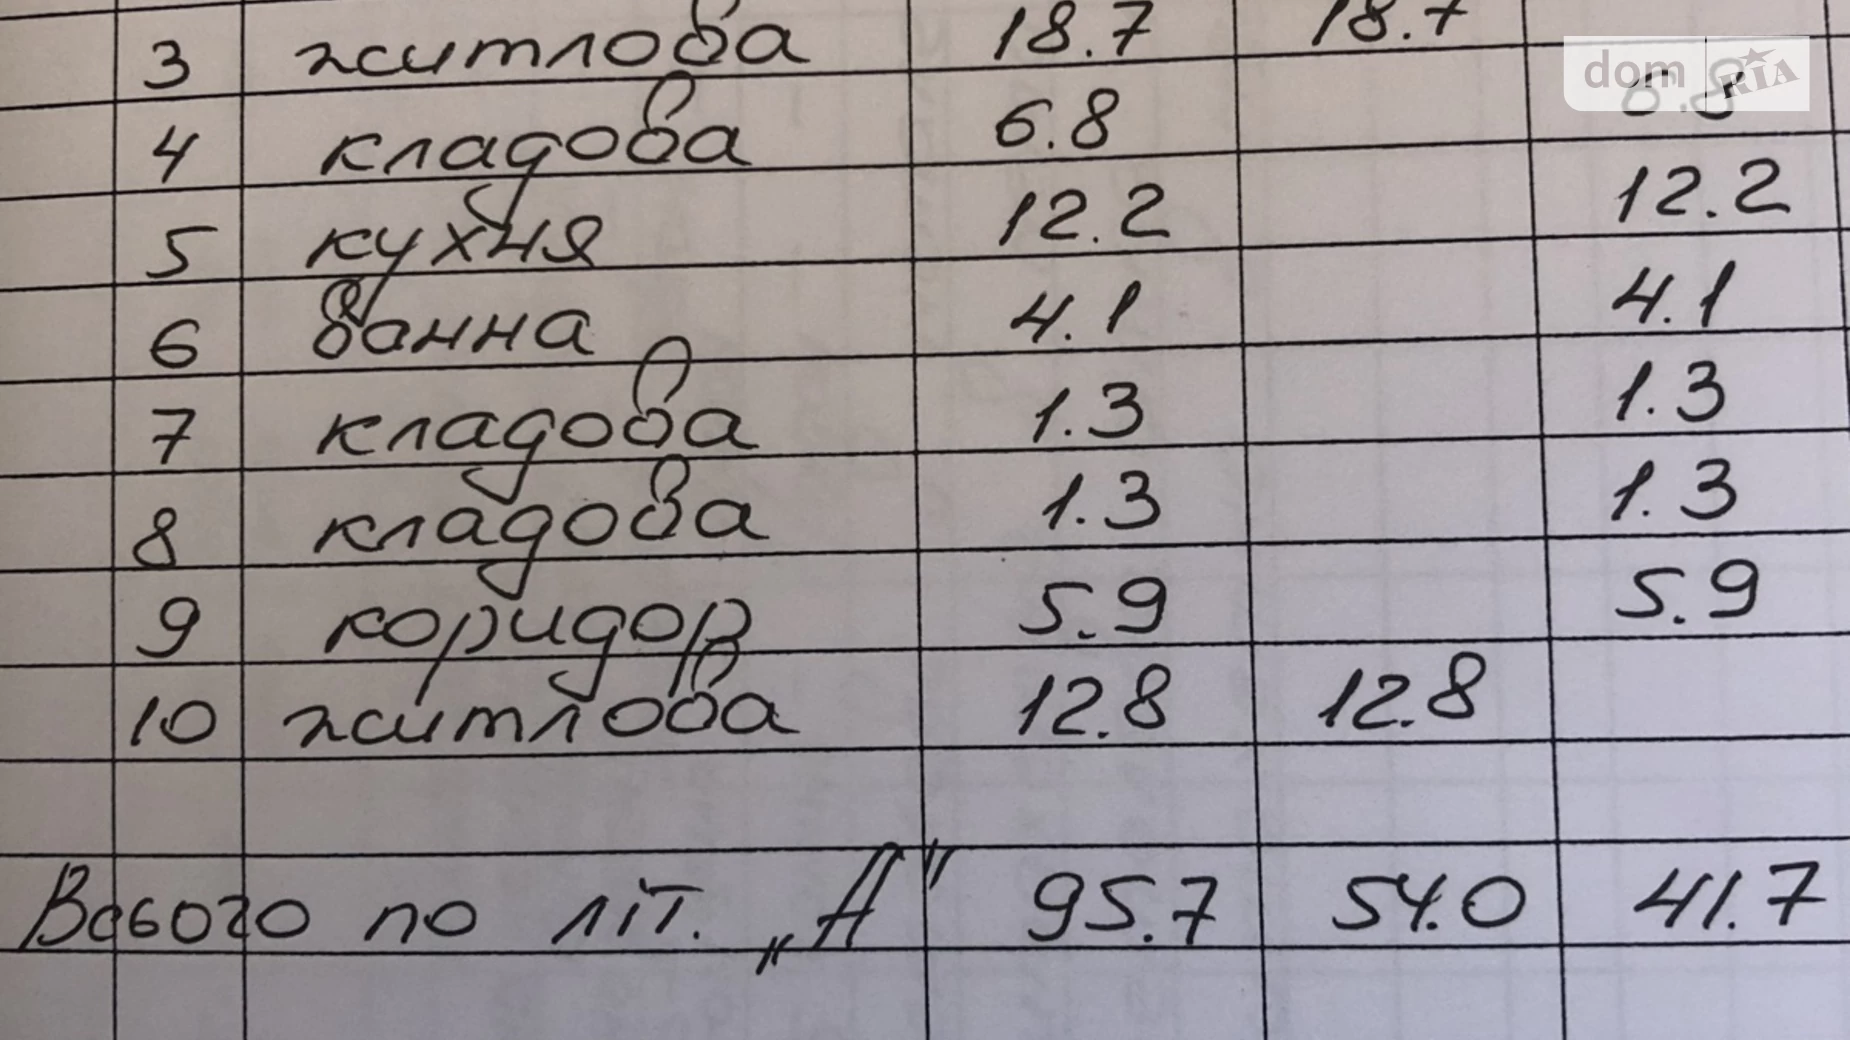 3 житлова 18.7 18.7
dom RIA
4 кладова 6.8 6.8
5 кухня 12.2 12.2
6 ванна 4.1 4.1
7 кладова 1.3 1.3
8 кладова 1.3 1.3
9 коридор 5.9 5.9
10 житлова 12.8 12.8
Всього по літ. „А" 95.7 54.0 41.7